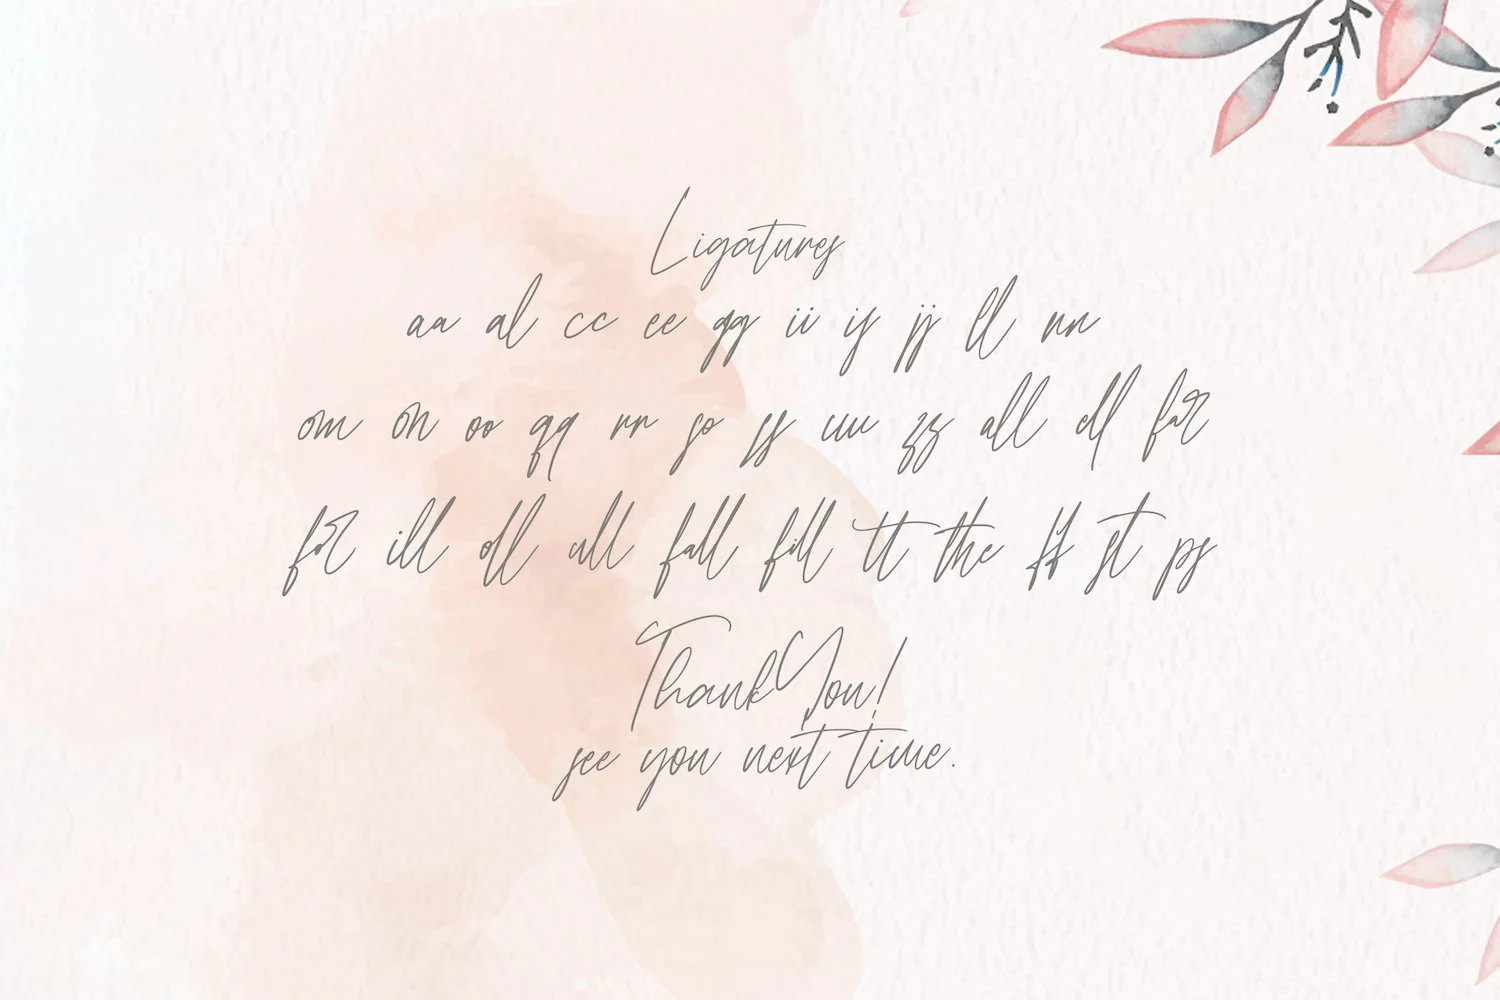 Ligatures
aa al cc ee gg ii ij jj ll nn
om on oo qq rr so ss uu zz all ell far
for ill oll ull fall fill tt the ff st ps
Thank You!
see you next time.